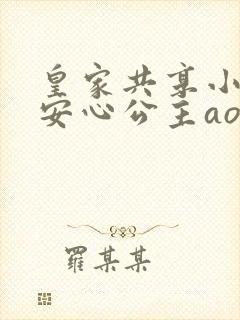 皇家共享小
安心公主ao
羅某某